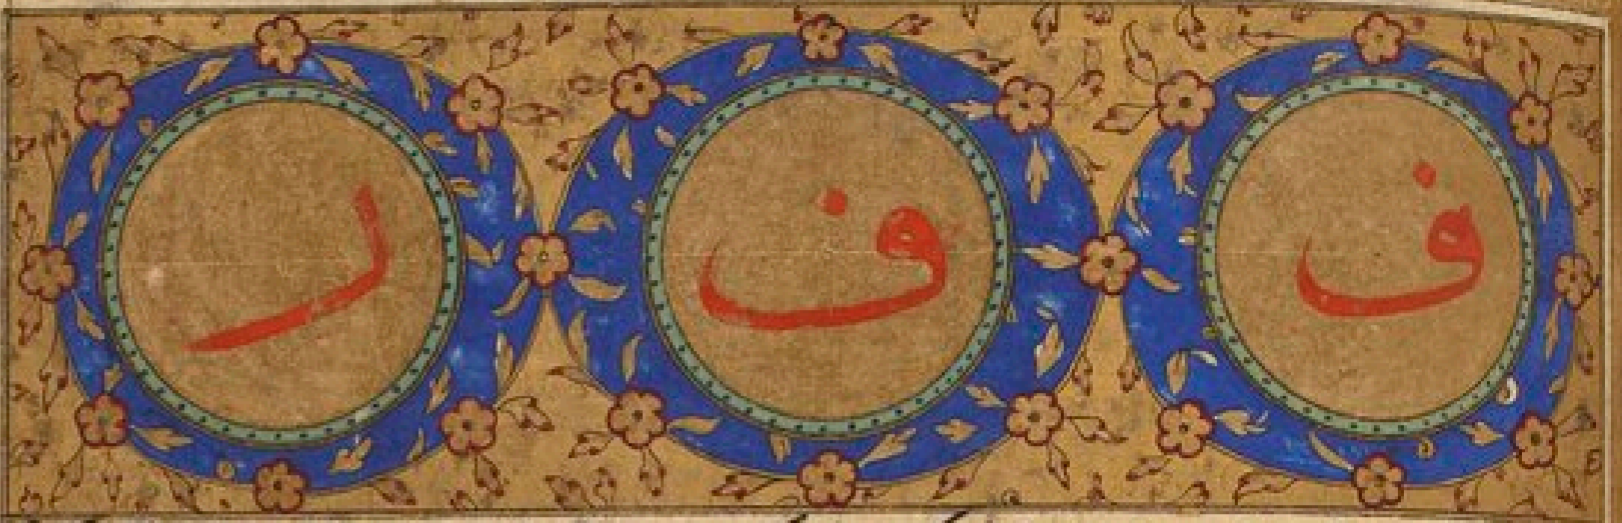 ف ف ر